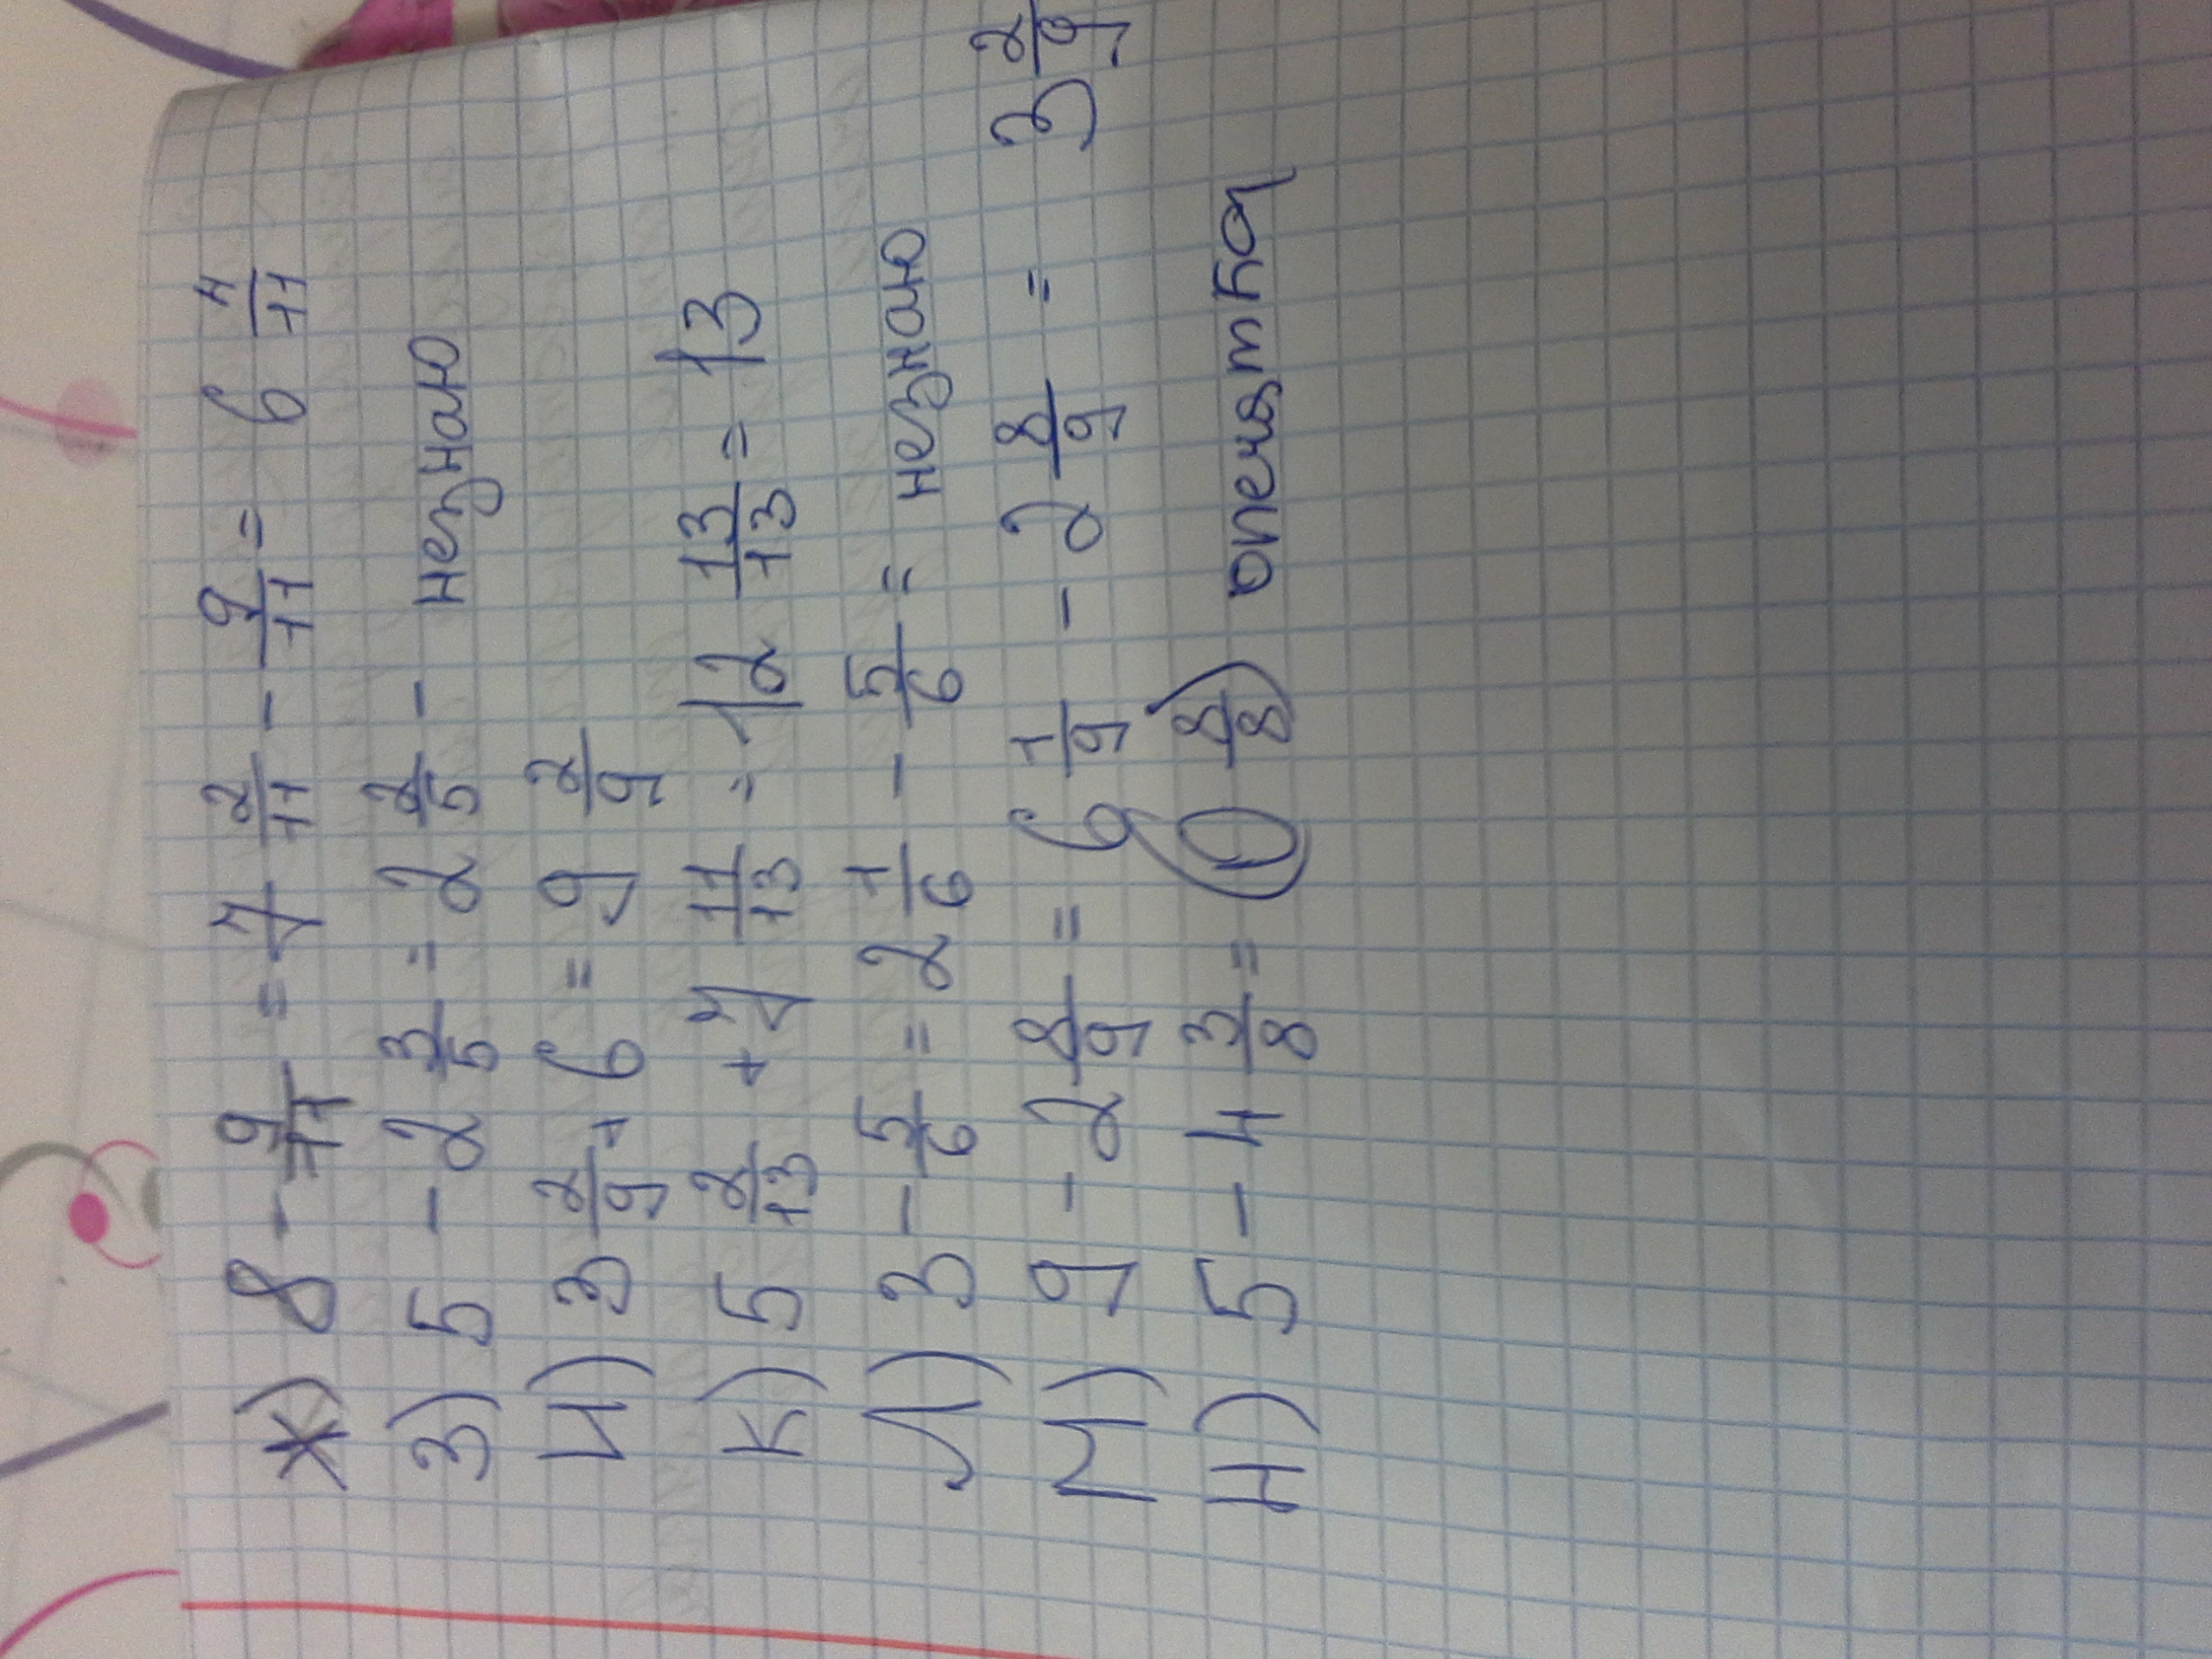 Ж) 8 - 9/11 = 7 2/11 - 9/11 = 6 4/11
З) 5 - 2 3/5 = 2 2/5 - незнаю
И) 3 2/9 + 6 = 9 2/9
К) 5 2/13 + 7 11/13 = 12 13/13 = 13
Л) 3 - 5/6 = 2 1/6 - 5/6 = незнаю
М) 9 - 2 8/9 = 6 1/9 - 2 8/9 = 3 2/9
Н) 5 - 4 3/8 = (1 8/8) опечятка